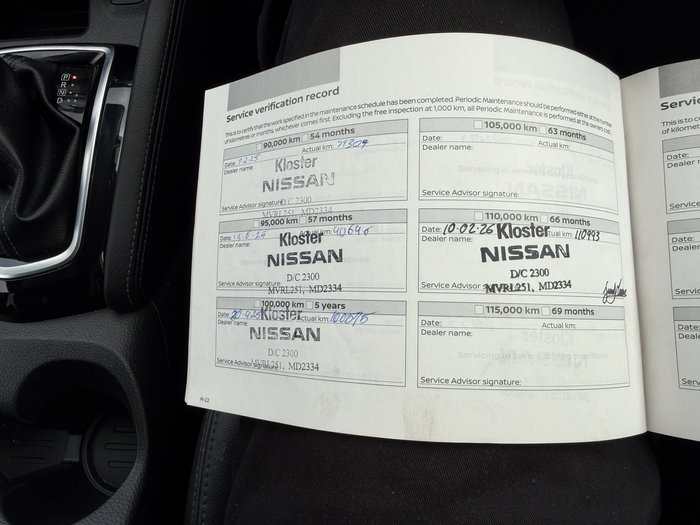 P
R
N
D
Service verification record
This is to certify that the work specified in the maintenance schedule has been completed. Periodic Maintenance should be performed either at the number
of kilometres or months, whichever comes first. Excluding the free inspection at 1,000 km, all Periodic Maintenance is performed at the owner's cost.
90,000 km 54 months
Date: Actual km:
Dealer name: Kloster
NISSAN
Service Advisor signature: D/C 2300
MVRL251, MD2334
95,000 km 57 months
Date: Actual km:
Dealer name: Kloster
NISSAN
D/C 2300
Service Advisor signature:
MVRL251, MD2334
100,000 km 5 years
Date: Actual km:
Dealer name: Kloster
NISSAN
D/C 2300
Service Advisor signature:
MVRL251, MD2334
105,000 km 63 months
Date: Actual km:
Dealer name:
Service Advisor signature:
110,000 km 66 months
Date: 10-02-26 Actual km: 110993
Dealer name: Kloster
NISSAN
D/C 2300
Service Advisor signature:
MVRL251, MD2334
115,000 km 69 months
Date: Actual km:
Dealer name:
Service Advisor signature:
M-22
Servic
This is to c
of kilomet
Date:
Dealer
Service
Date:
Dealer
Servic
Date:
Deale
Servi